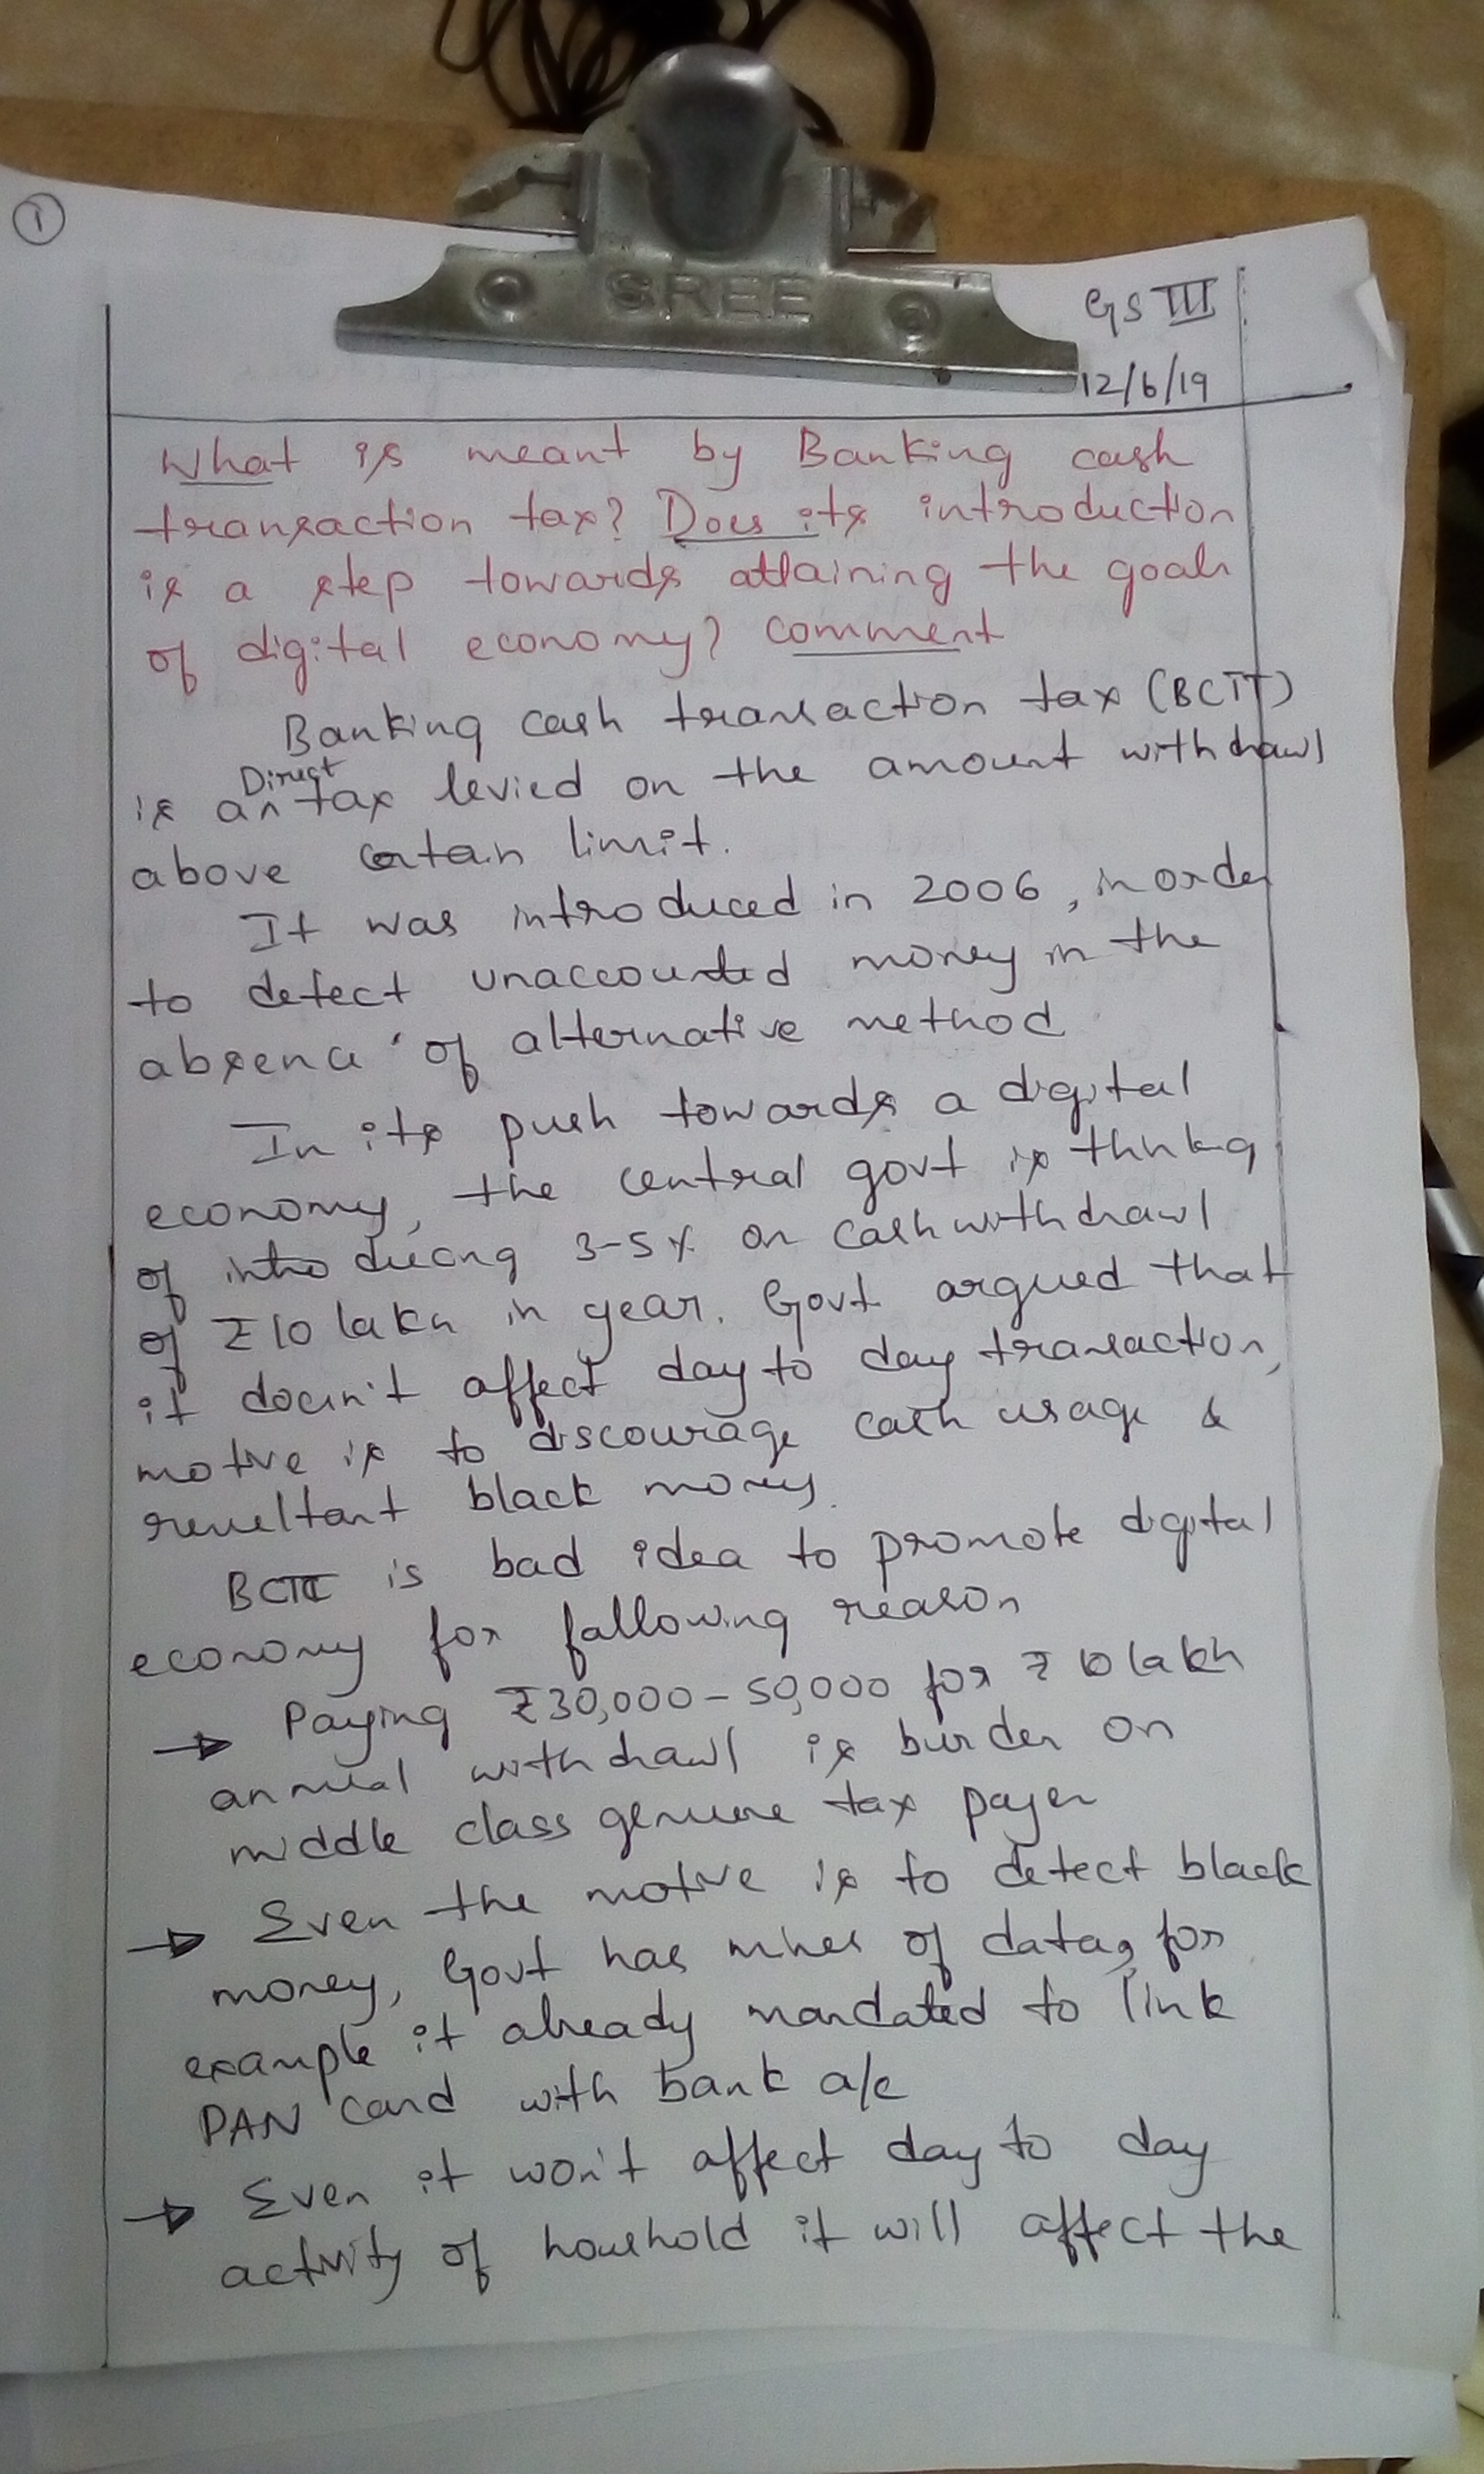 1
SREE
GS III
12/6/19
What is meant by Banking cash
transaction tax? Does its introduction
is a step towards attaining the goals
of digital economy? Comment
Banking cash transaction tax (BCTT)
Direct
is an tax levied on the amount withdrawl
above certain limit.
It was introduced in 2006, in order
to detect unaccounted money in the
absence of alternative method
In its push towards a digital
economy, the central govt is thinking
of introducing 3-5% on cash withdrawl
of ₹10 lakh in year. Govt argued that
it doesn't affect day to day transaction,
motive is to discourage cash usage &
resultant black money.
BCTT is bad idea to promote digital
economy for following reason
→ Paying ₹30,000-50,000 for ₹10 lakh
annual withdrawl is burden on
middle class genuine tax payer
→ Even the motive is to detect black
money, Govt has mines of data, for
example it already mandated to link
PAN card with bank a/c
→ Even it won't affect day to day
activity of household it will affect the